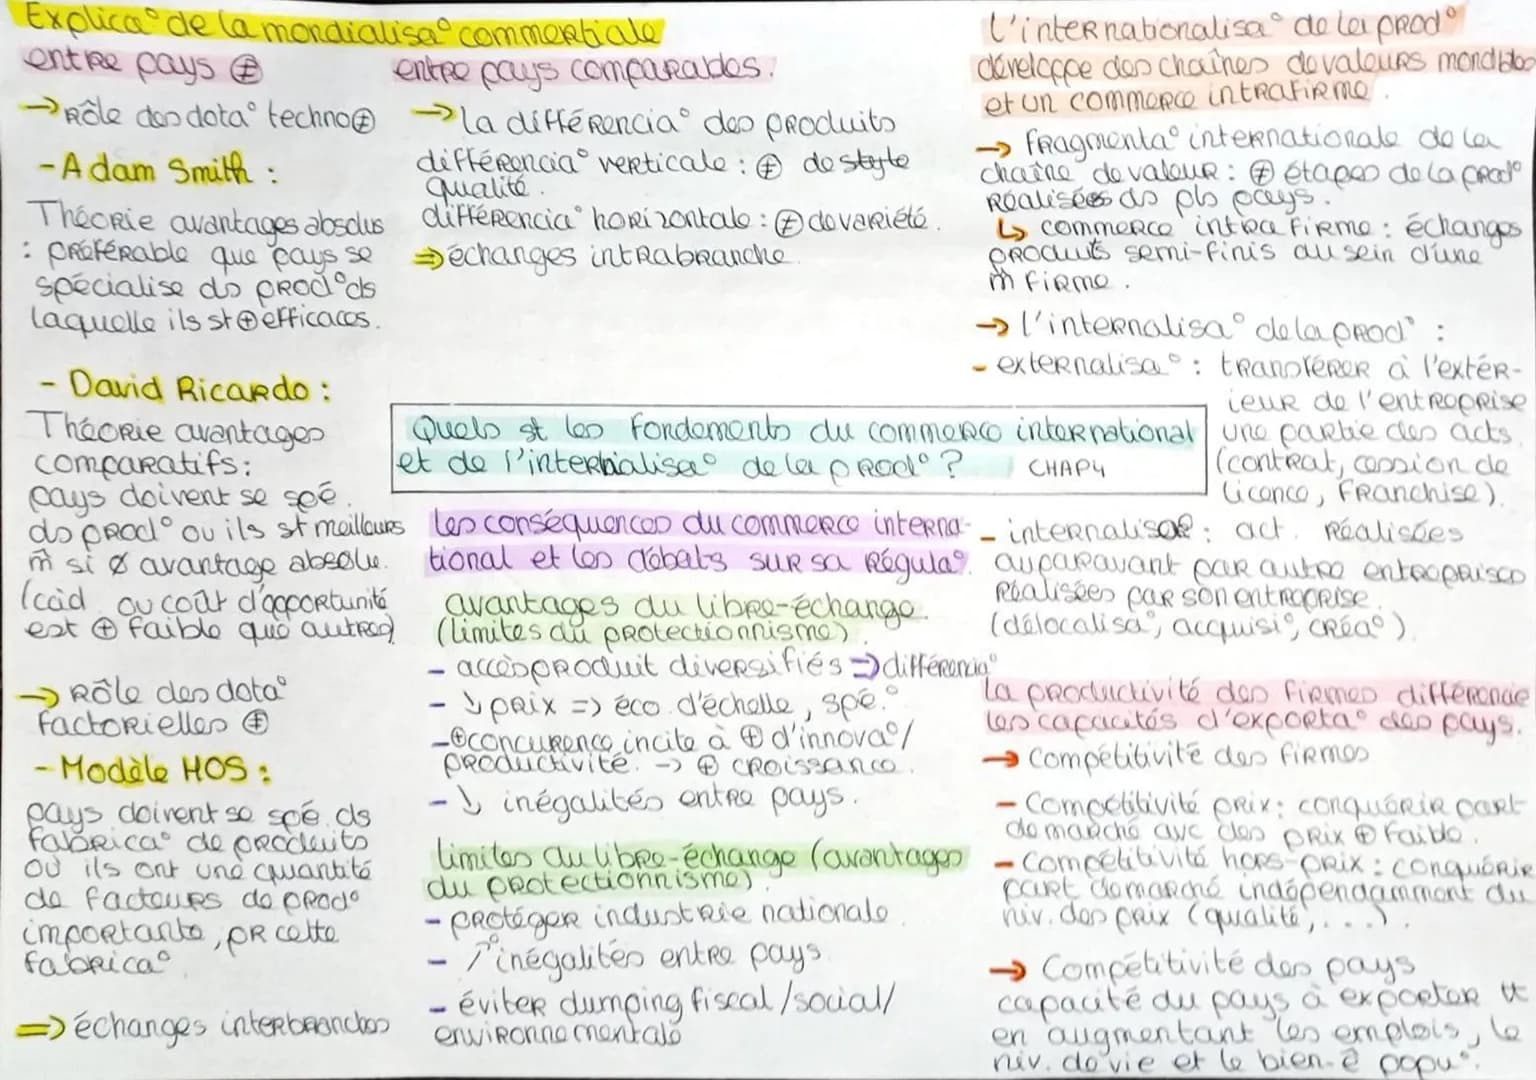 Explica° de la mondialisa° commertiale
entre pays ≠
→ Rôle des dota° techno ≠
- Adam Smith :
Théorie avantages absolus
: préférable que pays se
spécialise ds prod° ds
laquelle ils st ⊕ efficaces.
- David Ricardo :
Théorie avantages
comparatifs :
pays doivent se spé.
ds prod° ou ils st meilleurs
m̂ si ø avantage absolu.
(càd ou coût d'opportunité
est ⊕ faible que autres)
→ Rôle des dota°
factorielles ≠
- Modèle HOS :
pays doivent se spé. ds
fabrica° de produits
où ils ont une quantité
de facteurs de prod°
importante, pr cette
fabrica°
=> échanges interbranches
entre pays comparables.
→ la différencia° des produits
différencia° verticale : ≠ de style
qualité.
différencia° horizontale : ≠ de variété.
=> échanges intrabranche.
Quels st les fondements du commerce international
et de l'internalisa° de la prod° ? CHAP4
les conséquences du commerce interna-
tional et les débats sur sa régula°.
avantages du libre-échange
(limites du protectionnisme).
- accès produit diversifiés => différencia°
- ↓ prix => éco d'échelle, spé.°
- ⊕ concurence incite à ⊕ d'innova°/
productivité. -> ⊕ croissance.
- ↓ inégalités entre pays.
limites du libre-échange (avantages
du protectionnisme).
- protéger industrie nationale
- ↗ inégalités entre pays
- éviter dumping fiscal/social/
environnementale
L'internationalisa° de la prod°
développe des chaînes de valeurs mondiales
et un commerce intrafirme.
→ fragmenta° internationale de la
chaîne de valeur : ≠ étapes de la prod°
réalisées ds pls pays.
↳ commerce intra firme : échanges
produits semi-finis au sein d'une
m̂ firme.
→ l'internalisa° de la prod° :
- externalisa° : transférer à l'extér-
ieur de l'entreprise
une partie des acts
(contrat, cession de
licence, franchise).
- internaliser : act. réalisées
auparavant par autre entreprises
réalisées par son entreprise.
(délocalisa°, acquisi°, créa°).
la productivité des firmes différencie
les capacités d'exporta° des pays.
→ Compétitivité des firmes
- Compétitivité prix : conquérir part
de marché avc des prix ⊕ faible.
- Compétitivité hors-prix : conquérir
part de marché indépendamment du
niv. des prix (qualité, ...).
→ Compétitivité des pays
capacité du pays à exporter tt
en augmentant les emplois, le
niv. de vie et le bien-ê popu°.